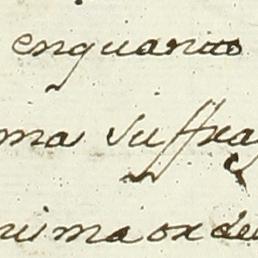 enquanto
ma suffra
rima orde